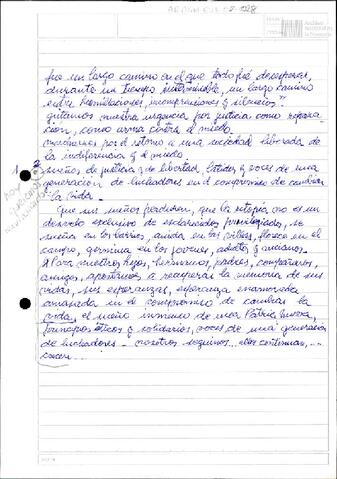 fue un largo camino en el que todo fue desesperar,
durante un tiempo interminable, un largo camino
entre humillaciones, incomprensiones y silencios".
gritamos nuestra urgencia por justicia como repara-
ción, como arma contra el miedo.
marchamos por el retorno a una sociedad liberada de
la indiferencia y el miedo.
sueños de justicia y de libertad, latidos y voces de una
generación de luchadores en el compromiso de cambiar
la vida.
Que sus sueños perduren, que la utopía no es un
derecho exclusivo de esclarecidos privilegiados, se
sueña en los barrios, anida en las villas, florece en el
campo, germina en los jóvenes, adultos y ancianos.
Para nuestros hijos, hermanos, padres, compañeros,
amigos, apostamos a recuperar la memoria de sus
vidas, sus esperanzas, esperanza enamorada
amasada en el compromiso de cambiar la
vida, el sueño inmenso de una Patria nueva,
principios éticos y solidarios, voces de una generación
de luchadores - nosotros seguimos... ellos continúan....